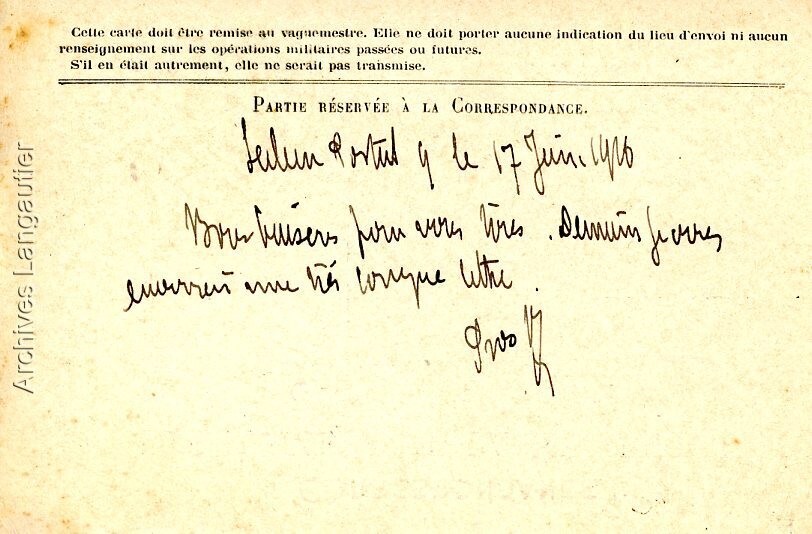 Cette carte doit être remise au vaguemestre. Elle ne doit porter aucune indication du lieu d'envoi ni aucun
renseignement sur les opérations militaires passées ou futures.
S'il en était autrement, elle ne serait pas transmise.
PARTIE RÉSERVÉE À LA CORRESPONDANCE.
Postal 9 le 17 Juin 1916
Bons baisers pour vous tous. Demain je vous
enverrai une très longue lettre.
Archives Langautier